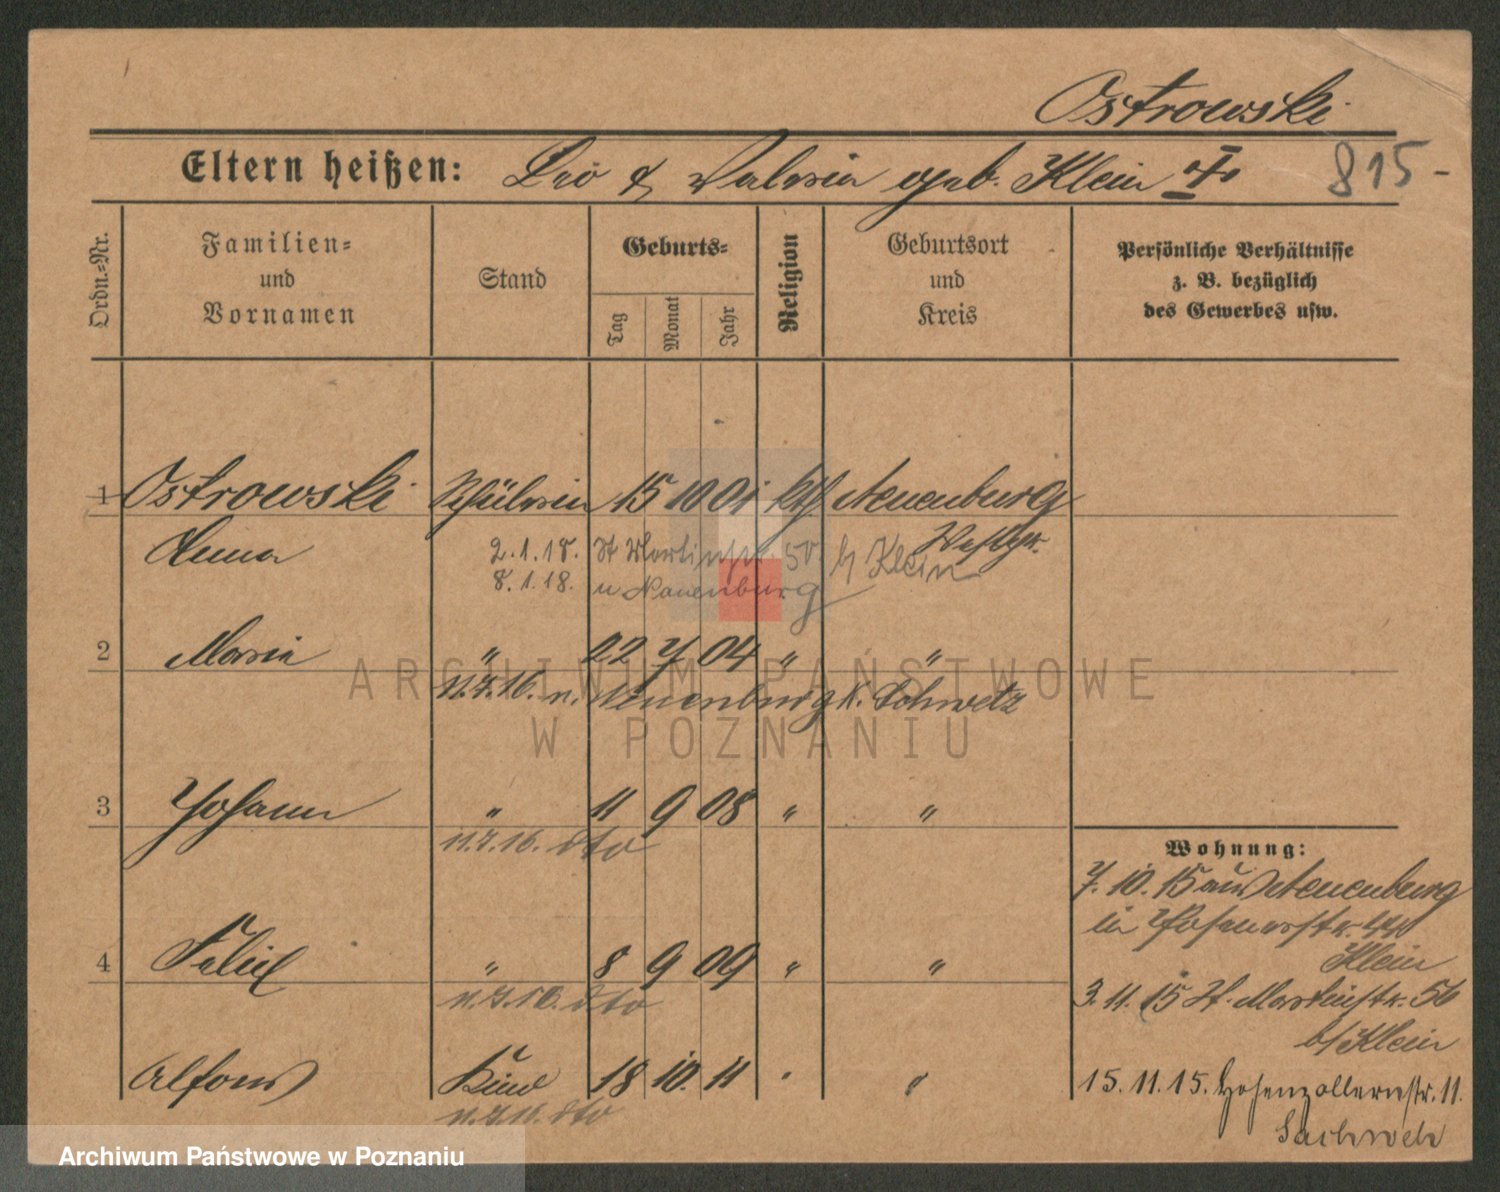 Ostrowski
Eltern heißen: Leo & Valeria geb. Klein
815-
Ordn.-Nr.
Familien-
und
Vornamen
Stand
Geburts-
Tag
Monat
Jahr
Religion
Geburtsort
und
Kreis
Persönliche Verhältnisse
z. B. bezüglich
des Gewerbes usw.
1 Ostrowski Schülerin 15 10 01 kth Neuenburg
Anna
Westpr.
2.1.18. St Martinstr. 50 b/ Klein
8.1.18. n Neuenburg
2 Maria " 22 7 04 " "
11.7.16. n. Neuenburg K. Schwetz
3 Johann " 11 9 08 " "
11.7.16. dto
4 Felix " 8 9 09 " "
11.7.16. dto
Alfons Kind 18 10. 11 "
11.7.16. dto
Wohnung:
7. 10. 15 aus Neuenburg
in Posenerstr. 44
Klein
3. 11. 15 St. Martinstr. 56
b/Klein
15. 11. 15. Hohenzollernstr. 11.
ARCHIWUM PAŃSTWOWE
W POZNANIU
Archiwum Państwowe w Poznaniu